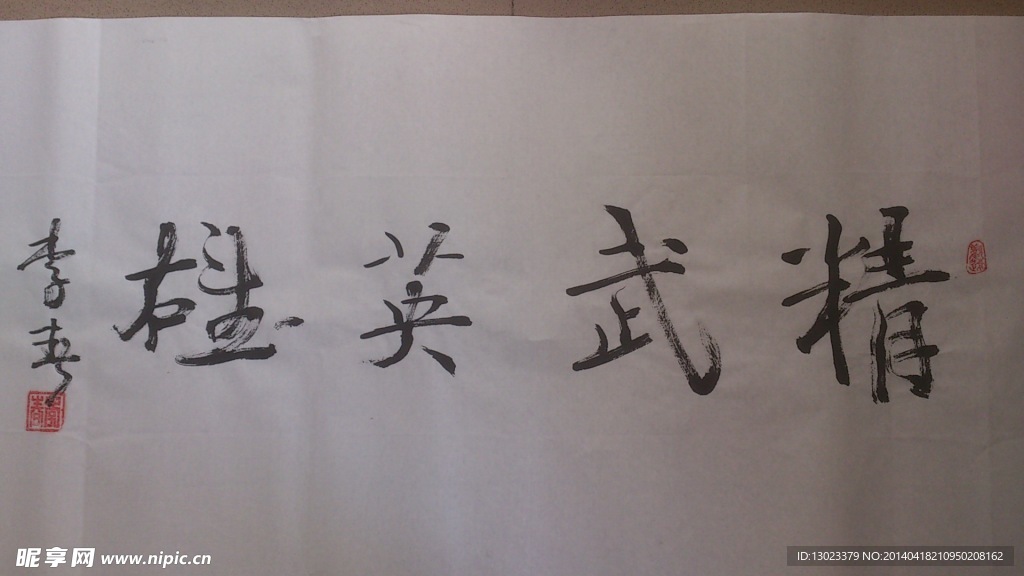 精武英雄
李春
昵享网 www.nipic.cn
ID:13023379 NO:20140418210950208162